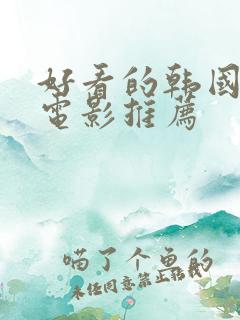 好看的韩国
電影推薦
喵了个鱼的
未任同意禁止转载